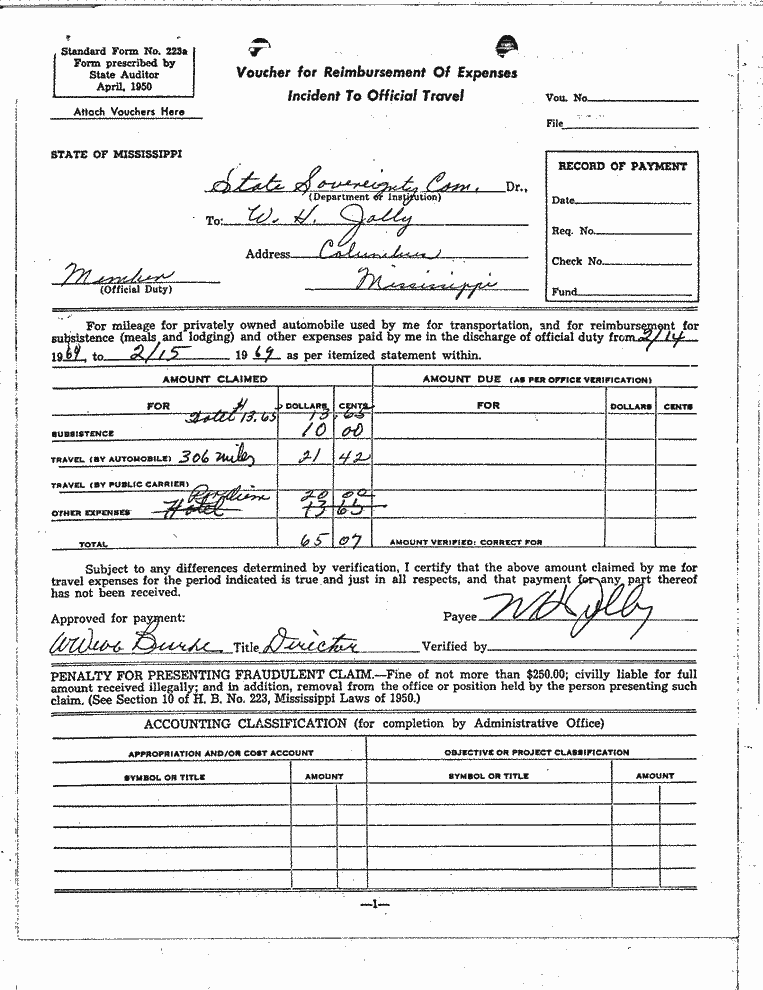 Standard Form No. 223a
Form prescribed by
State Auditor
April, 1950
Attach Vouchers Here
Voucher for Reimbursement Of Expenses
Incident To Official Travel
Vou. No.
File
STATE OF MISSISSIPPI
RECORD OF PAYMENT
Date
Req. No.
Check No.
Fund
State Sovereignty Com. Dr.,
(Department or Institution)
To: W. H. Jolly
Address Columbus
Mississippi
Member
(Official Duty)
For mileage for privately owned automobile used by me for transportation, and for reimbursement for
subsistence (meals and lodging) and other expenses paid by me in the discharge of official duty from 2/14
1969, to 2/15 1969 as per itemized statement within.
AMOUNT CLAIMED AMOUNT DUE (AS PER OFFICE VERIFICATION)
FOR DOLLARS CENTS FOR DOLLARS CENTS
Hotel 13.65 13.65
SUBSISTENCE 10 00
TRAVEL (BY AUTOMOBILE) 306 miles 21 42
TRAVEL (BY PUBLIC CARRIER)
Per diem 20 00
OTHER EXPENSES Hotel 13 65
TOTAL 65 07 AMOUNT VERIFIED: CORRECT FOR
Subject to any differences determined by verification, I certify that the above amount claimed by me for
travel expenses for the period indicated is true and just in all respects, and that payment for any part thereof
has not been received.
Approved for payment: Payee W H Jolly
Burke Title Director Verified by
PENALTY FOR PRESENTING FRAUDULENT CLAIM.—Fine of not more than $250.00; civilly liable for full
amount received illegally; and in addition, removal from the office or position held by the person presenting such
claim. (See Section 10 of H. B. No. 223, Mississippi Laws of 1950.)
ACCOUNTING CLASSIFICATION (for completion by Administrative Office)
APPROPRIATION AND/OR COST ACCOUNT OBJECTIVE OR PROJECT CLASSIFICATION
SYMBOL OR TITLE AMOUNT SYMBOL OR TITLE AMOUNT
—1—